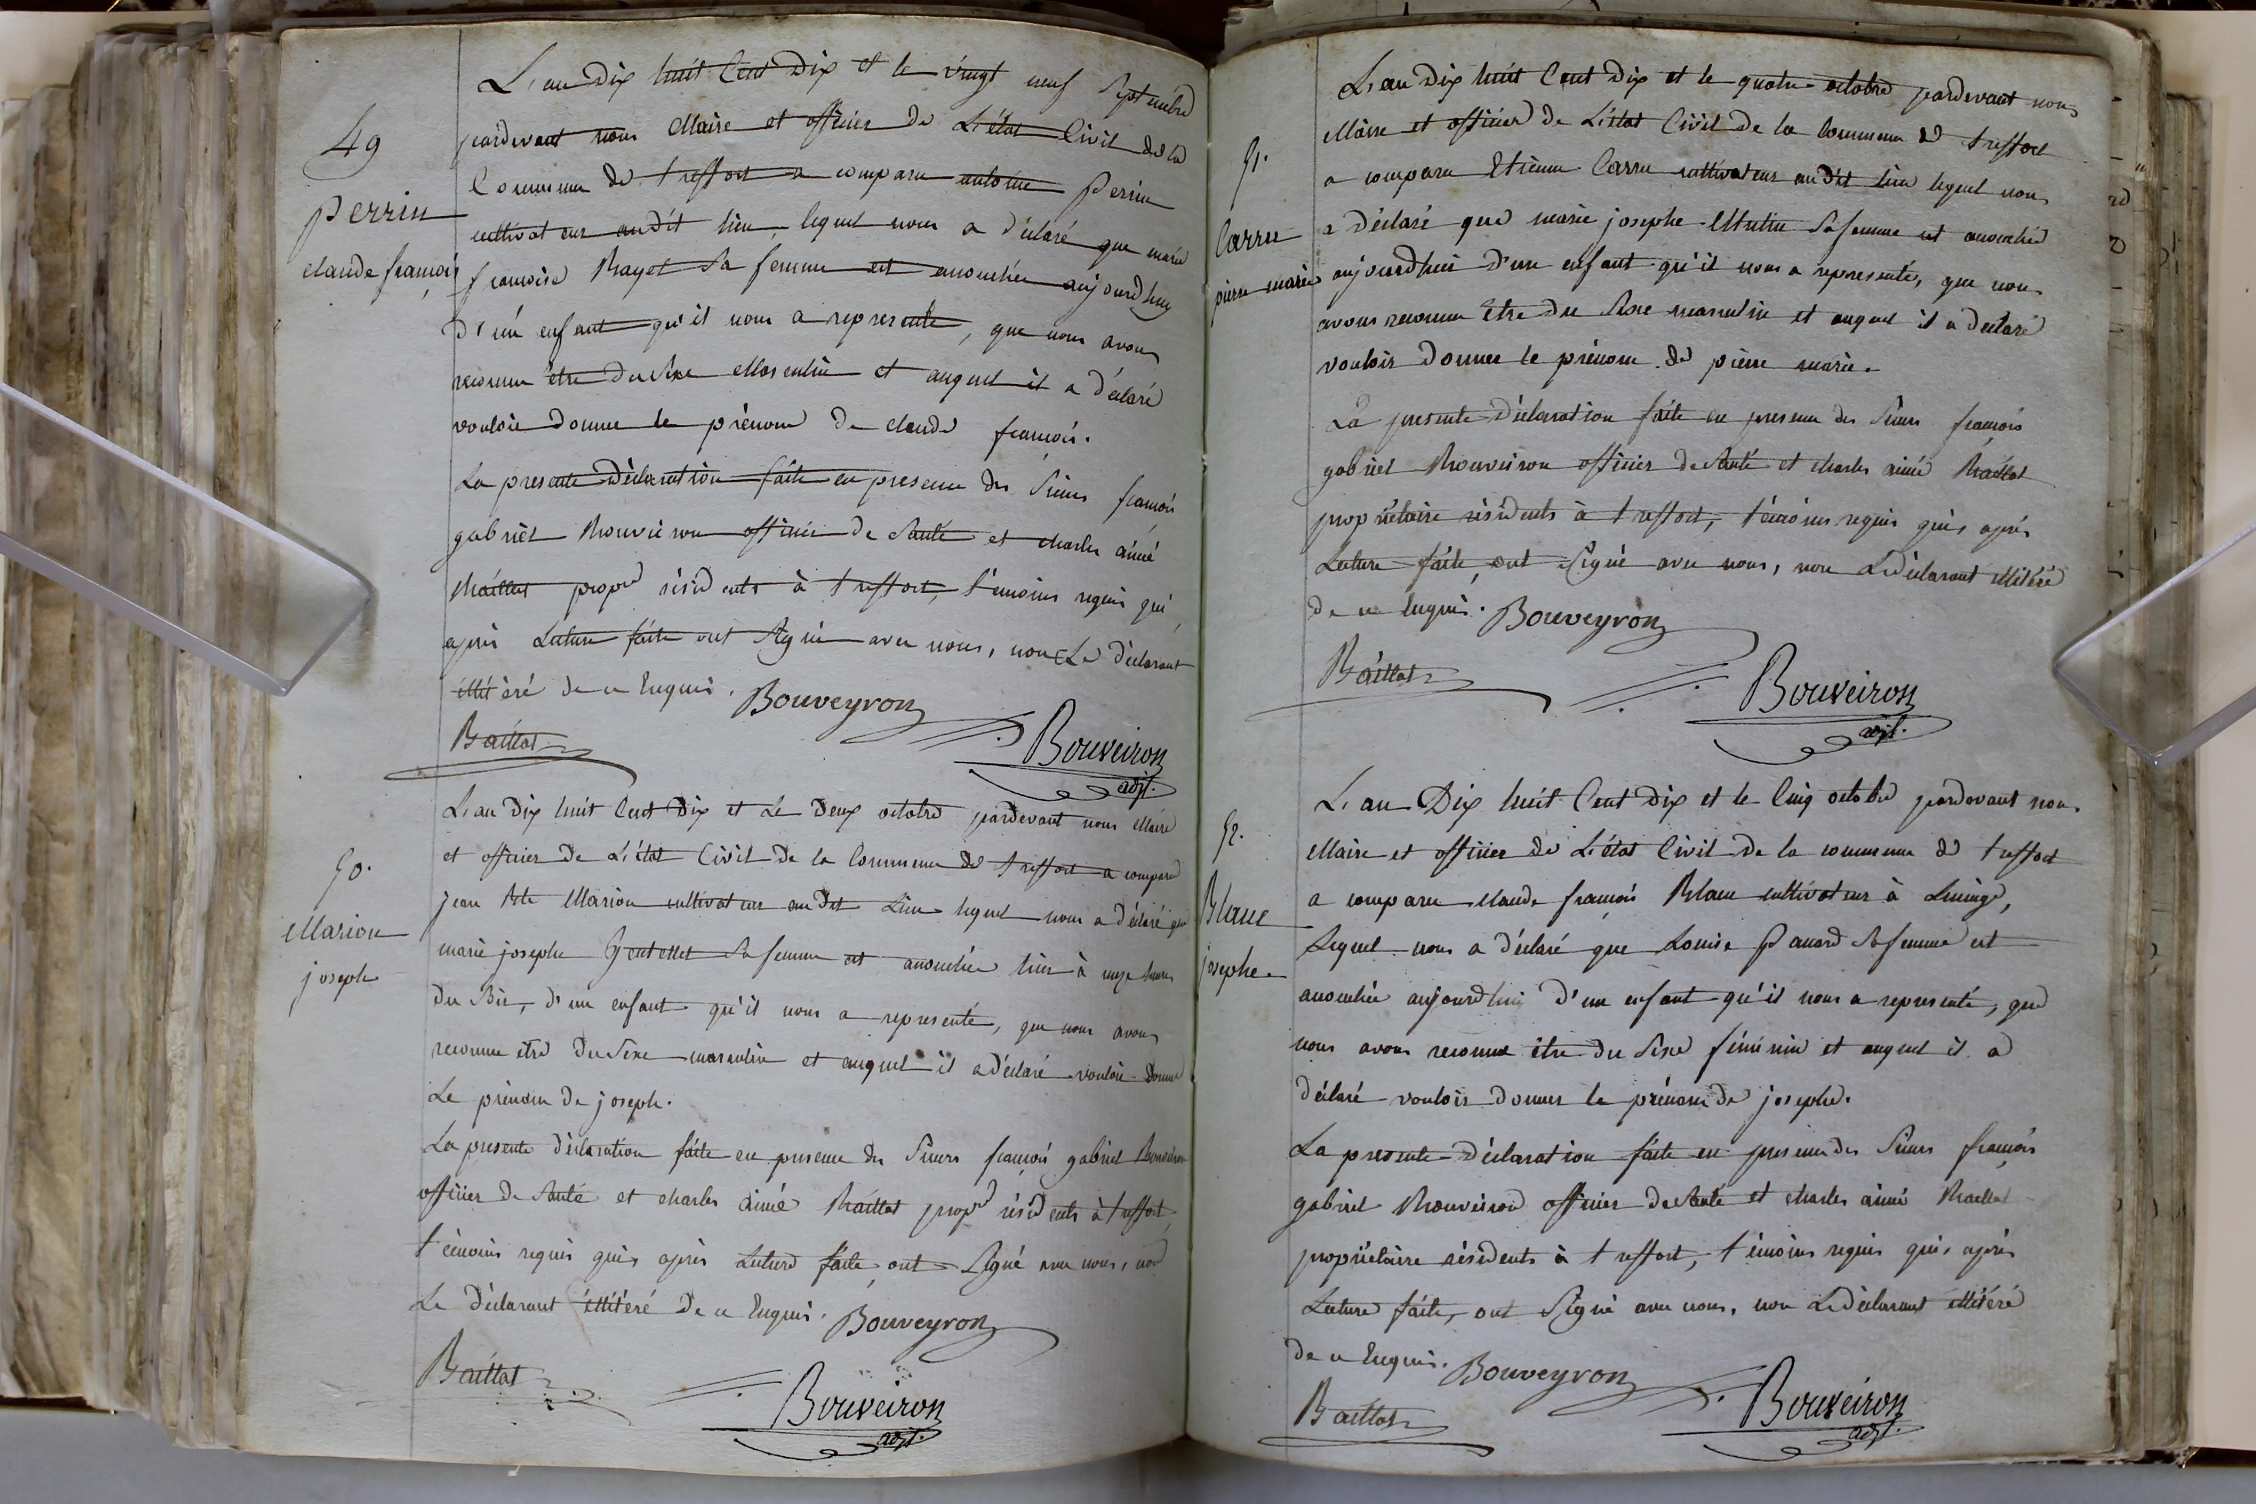 49
perrin
claude françois
L'an Dix huit Cent Dix et le vingt neuf Septembre
pardevant nous Maire et officier de L'état Civil de la
Commune de treffort a comparu antoine perrin
cultivateur audit lieu, lequel nous a déclaré que marie
françoise Rayet Sa femme est accouchée aujourdhuy
D'un enfant qu'il nous a representé, que nous avons
reconnu être du Sexe Masculin et auquel il a déclaré
vouloir donner le prénom de claude françois.
La presente Déclaration faite en presence des Sieurs françois
gabriel Bouveiron officier de Santé et charles aimé
Baillat propre résidents à treffort, témoins requis qui
après Lecture faite ont Signé avec nous, non Le déclarant
illitéré de ce Enquis. Bouveyron
Baillat
Bouveiron
adjt.
50.
Marion
joseph
L'an Dix huit Cent Dix et Le Deux octobre pardevant nous Maire
et officier de L'état Civil de la Commune de treffort a comparu
jean Bte Marion cultivateur audit Lieu lequel nous a déclaré que
marie josephe Gentellet Sa femme est accouchée hier à onze heures
du Soir, d'un enfant qu'il nous a representé, que nous avons
reconnu être du Sexe masculin et auquel il a déclaré vouloir Donner
Le prénom de joseph.
La presente déclaration faite en presence des Sieurs françois gabriel Bouveiron
officier de Santé et charles aimé Baillat propre résidents à treffort,
témoins requis qui, après Lecture faite, ont Signé avec nous, non
Le déclarant illitéré De ce Enquis. Bouveyron
Baillat
Bouveiron
adjt.
51.
Carru
pierre marie
L'an Dix huit Cent Dix et le quatre octobre pardevant nous
Maire et officier de L'état Civil de la Commune de treffort
a comparu Etienne Carru cultivateur audit lieu lequel nous
a déclaré que marie josephe Sa femme est accouchée
aujourdhui d'un enfant qu'il nous a representé, que nous
avons reconnu Etre du Sexe masculin et auquel il a déclaré
vouloir Donner le prénom de pierre marie.
La presente Déclaration faite en presence des Sieurs françois
gabriel Bouveiron officier de Santé et charles aimé Baillat
propriétaire résidents à treffort, témoins requis qui, après
Lecture faite, ont Signé avec nous, non Le déclarant illitéré
De ce Enquis. Bouveyron
Baillat
Bouveiron
adjt.
52.
Blanc
josephe.
L'an Dix huit Cent Dix et le Cinq octobre pardevant nous
Maire et officier de L'état Civil de la commune de treffort
a comparu claude françois Blanc cultivateur à
Lequel nous a déclaré que Louise Panard Sa femme est
accouchée aujourdhui d'un enfant qu'il nous a representé, que
nous avons reconnu être du Sexe féminin et auquel il a
déclaré vouloir donner le prénom de josephe.
La presente Déclaration faite en presence des Sieurs françois
gabriel Bouveiron officier de Santé et charles aimé Baillat
propriétaire résidents à treffort, témoins requis qui, après
Lecture faite, ont Signé avec nous, non Le déclarant illitéré
De ce Enquis. Bouveyron
Baillat
Bouveiron
adjt.